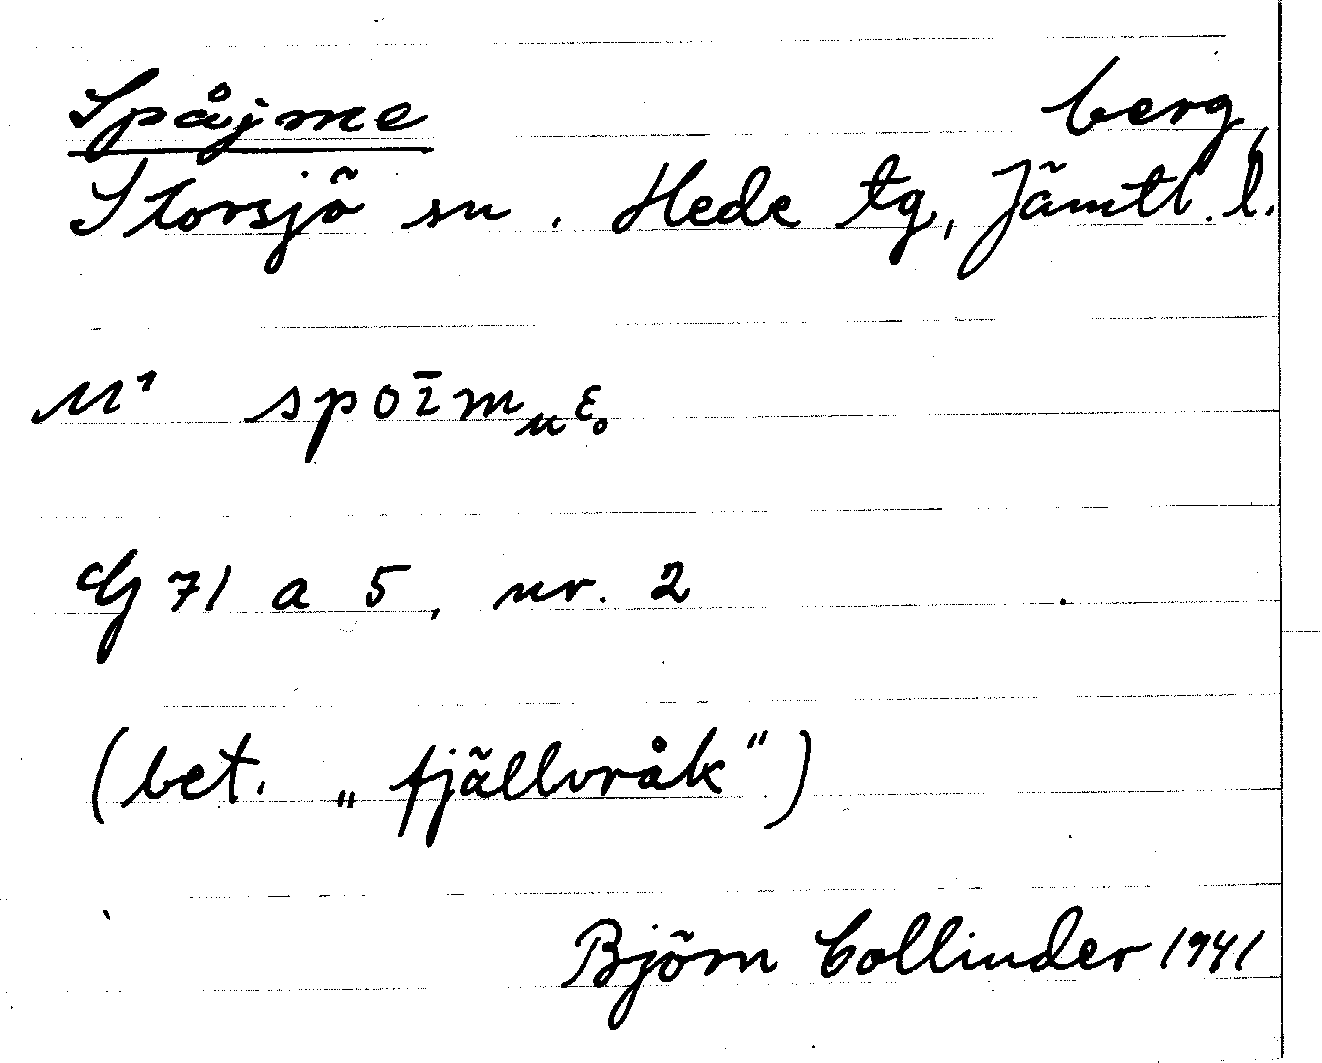 Spåjme berg,
Storsjö sn. Hede tg, Jämtl. l.
M¹ spoīmₘɛ̥
G 71 a 5, nr. 2
(bet. „fjällvråk")
Björn Collinder 1941